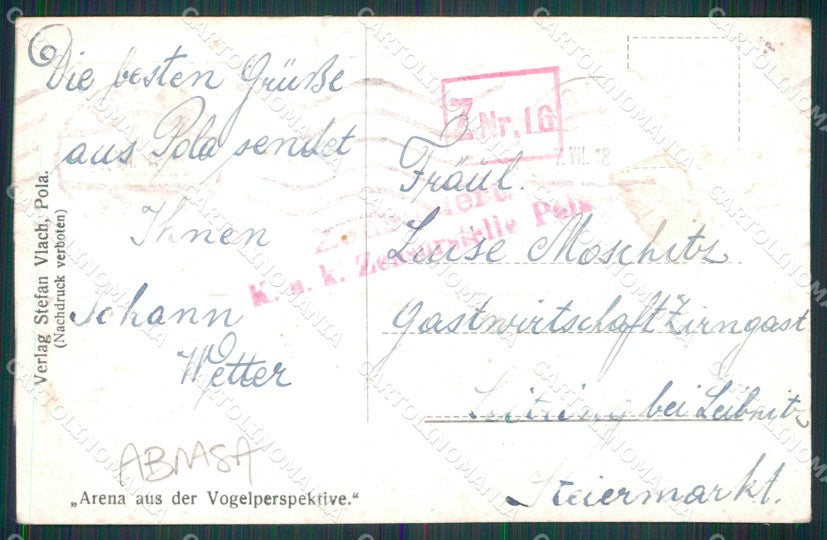 Die besten Grüße
aus Pola sendet
Ihnen
Johann
Wetter
Verlag Stefan Vlach, Pola.
(Nachdruck verboten)
ABRASA
„Arena aus der Vogelperspektive.“
Z Nr. 16
VIII. 18
Zensuriert
K. u. k. Zensurstelle Pola
Fräul.
Luise Moschitz
Gastwirtschaft Zirngast
bei Leibnitz
Steiermarkt.
CARTOLINOMANIA